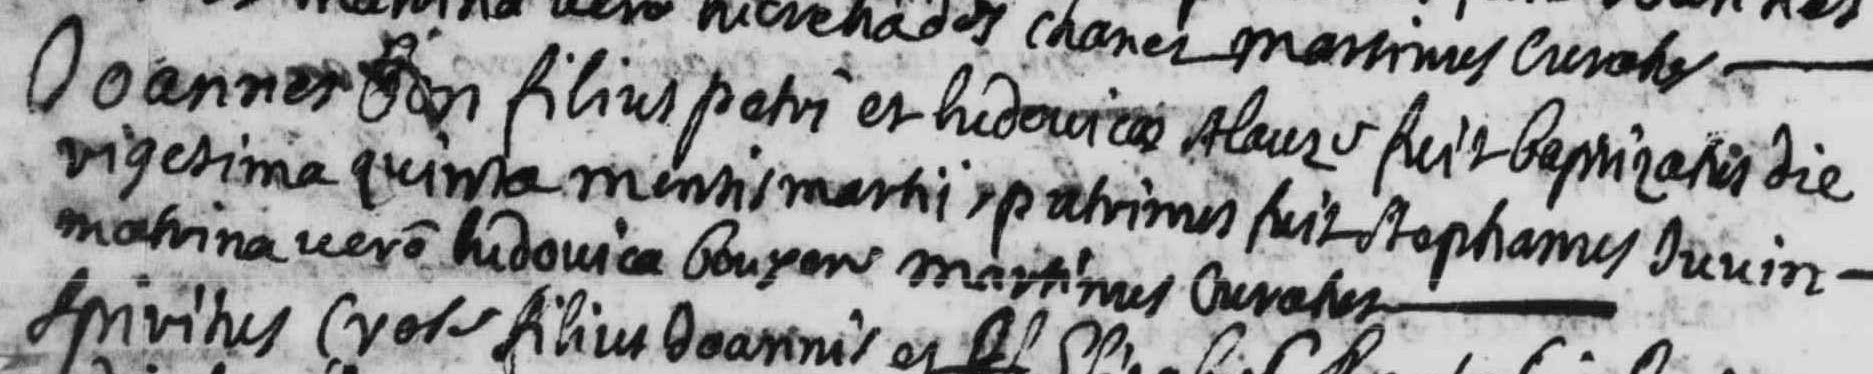 matrina vero chaner martinus Curatus
Joannes Bon filius petri et ludovicae Alauzé fuit baptizatus die
vigesima quinta mensis martii, patrinus fuit stephanus Juuin -
matrina verò ludovica martinus Curatus
Spiritus filius Joannis et